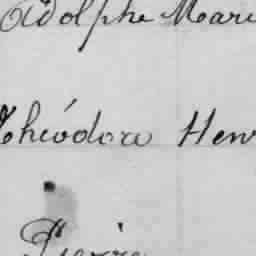 Adolphe Marie
Théodore Hen
Pierre